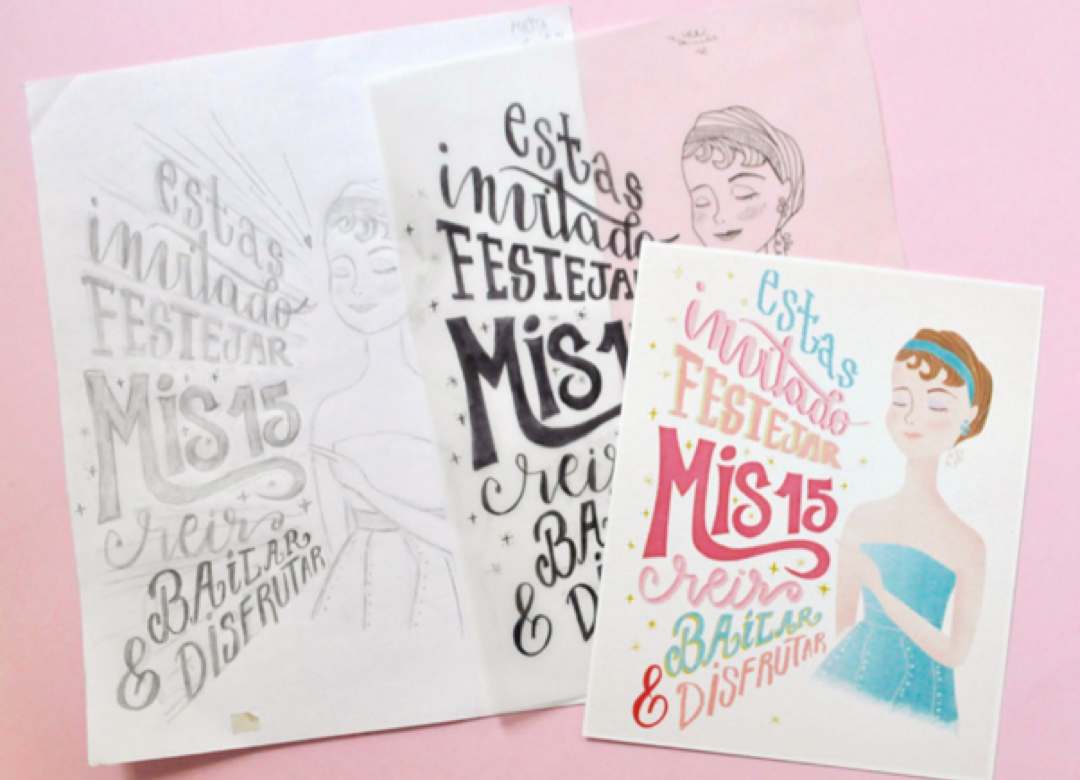 estas
invitado
FESTEJAR
Mis 15
reir
BAiLAR
& DiSFRUTAR
estas
invitado
FESTEJAR
Mis 1
reir
BA
& Di
estas
invitado
FESTEJAR
Mis 15
reir
BAiLAR
& DiSFRUTAR